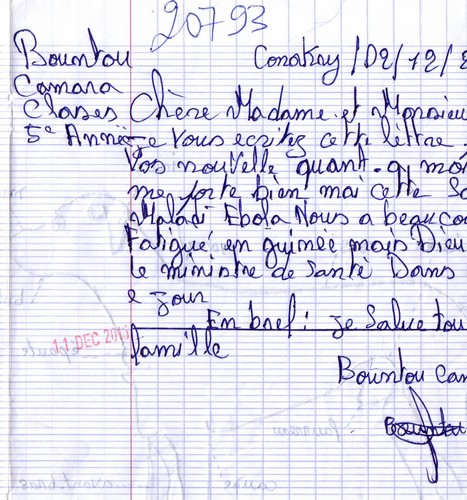 20793
Bountou Conakry / 02/12/2
Camara
Classes Chère Madame et Monsieu
5e Année Je vous ecritez cette lettre
Vos nouvelle quant-q moi
me porte bien mai cette Sa
Maladi Ebola Nous a beaucou
Fatigué en guinée mais Dieu
le ministre de Santé Dans
e jour
En bref: je Salue tou
famille
11 DEC 201
Bountou Cam